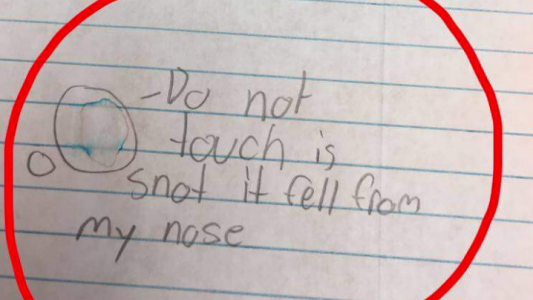 -Do not
touch is
snot it fell from
my nose